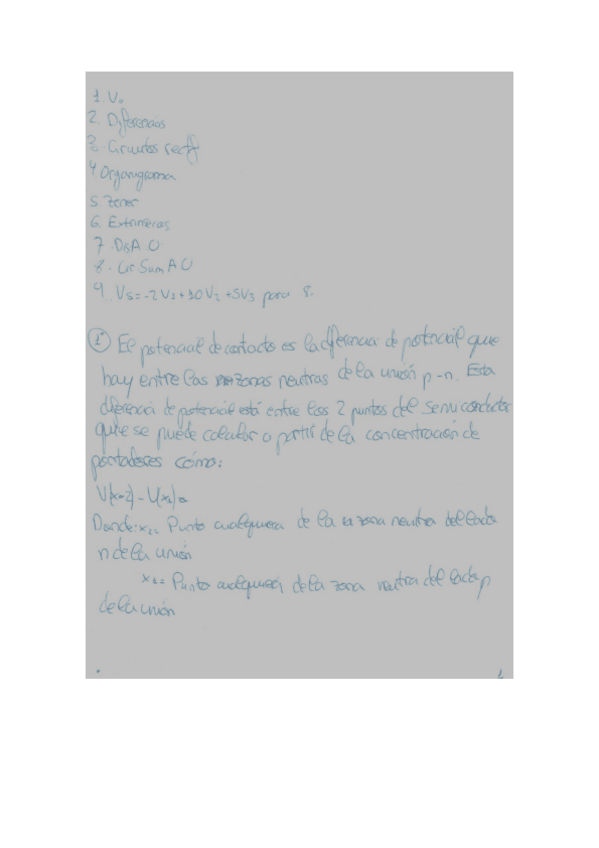 1. Vo
2. Diferencias
3. Circuitos rectf
4 Organigrama
5. Zener
6. Extrinsecos
7. Dis A O
8. Cir Sum A O
9. Vs = -2V1 + 10V2 + 5V3 para 8.
1º El potencial de contacto es la diferencia de potencial que
hay entre las zonas neutras de la unión p-n. Esta
diferencia de potencial está entre los 2 puntos del semiconductor
que se puede calcular a partir de la concentración de
portadores cómo:
V(x=2) - V(x1) =
Donde: Punto cualquiera de la zona neutra del lado
n de la unión
x1= Punto cualquiera de la zona neutra del lado p
de la unión
1